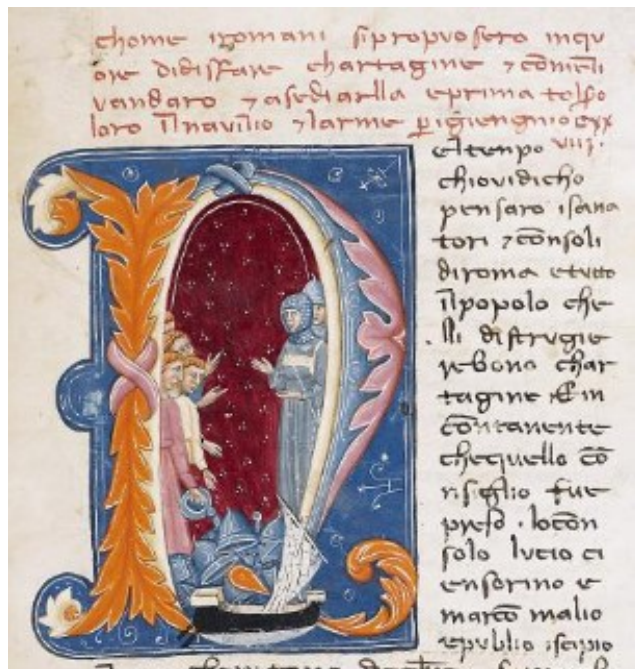 chome iromani sipropuosero inqu
ore didisfare chartagine ⁊ cōmēli
vandaro ⁊ asediarlla eprima tolsō
loro īlnavilio ⁊ larme ꝑ igiengnio cxx
viii.
el tenpo
chiovidicho
pensaro isana
tori ⁊ cōnsoli
diroma etutto
īlpopolo che
lli distrugie
rebono char
tagine Ein
cōntanente
chequello cō
nsiglio fue
preso . locōn
solo lucio ci
ensorino e
marco malio
epublio iscipio